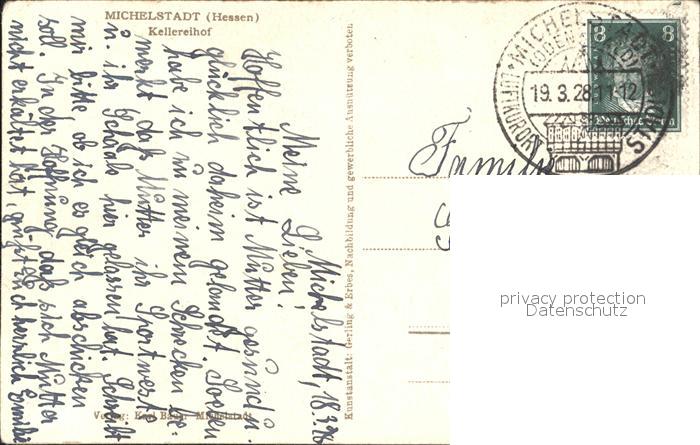 MICHELSTADT (Hessen)
Kellereihof
Michelstadt, 18.3.28
Meine Lieben!
Hoffentlich ist Mutter gesund u.
glücklich daheim gelandet. Soeben
habe ich zu meinem Schrecken be-
merkt daß Mutter ihr Sportweste
u. ihr Schal hier gelassen hat. Schreibt
mir bitte ob ich es gleich abschicken
soll. In der Hoffnung daß sich Mutter
nicht erkältet hat, grüßt Euch herzlich Emilie
Verlag: Karl Bauer Michelstadt
Kunstanstalt: Gerling & Erbes, Nachbildung und gewerbliche Ausnutzung verboten
MICHELSTADT
(ODENWALD)
19.3.28 11-12
LUFTKURORT
STADT
8 8
Deutsches Reich
Familie
privacy protection
Datenschutz